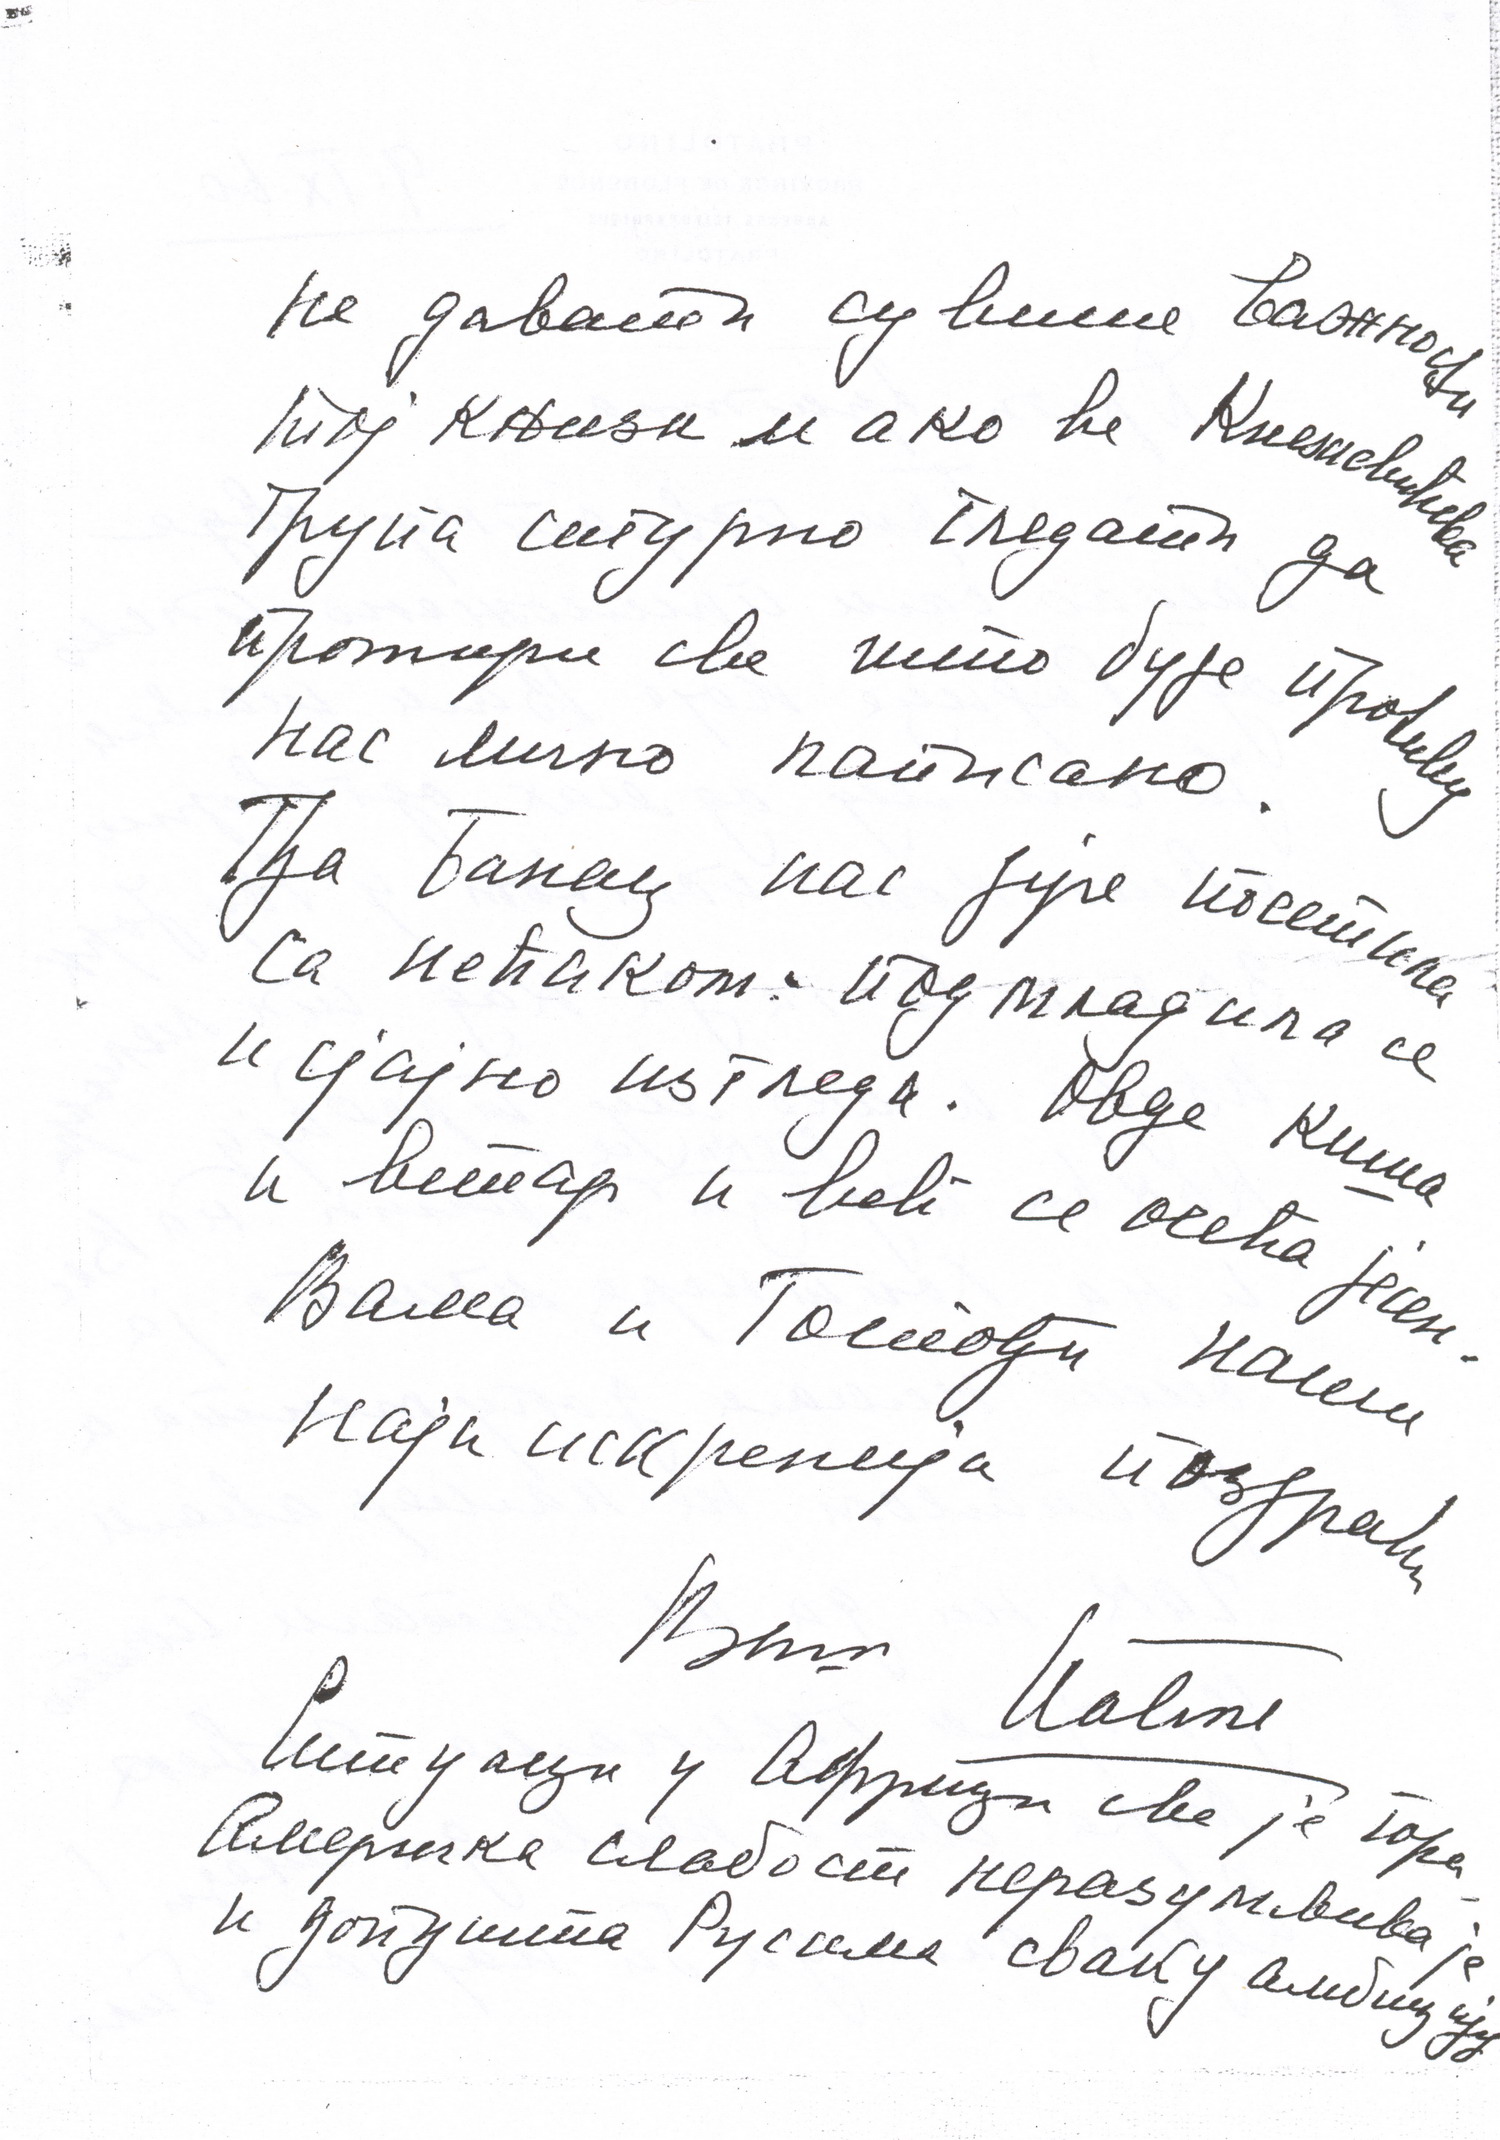 не давати сувише важности
тој књизи и ако ће Кнежевићева
група сигурно гледати да
протури све што буде противу
нас лично написано.
Гђа Банац нас јуче посетила
са нећаком. Подмладила се
и сјајно изгледа. Овде киша
и ветар и већ се осећа јесен.
Вама и Госпођи наши
најискренији поздрави
Ваш Павле
Ситуација у Африци све је гора.
Америчка слабост неразумљива је
и допушта Русима сваку амбицију